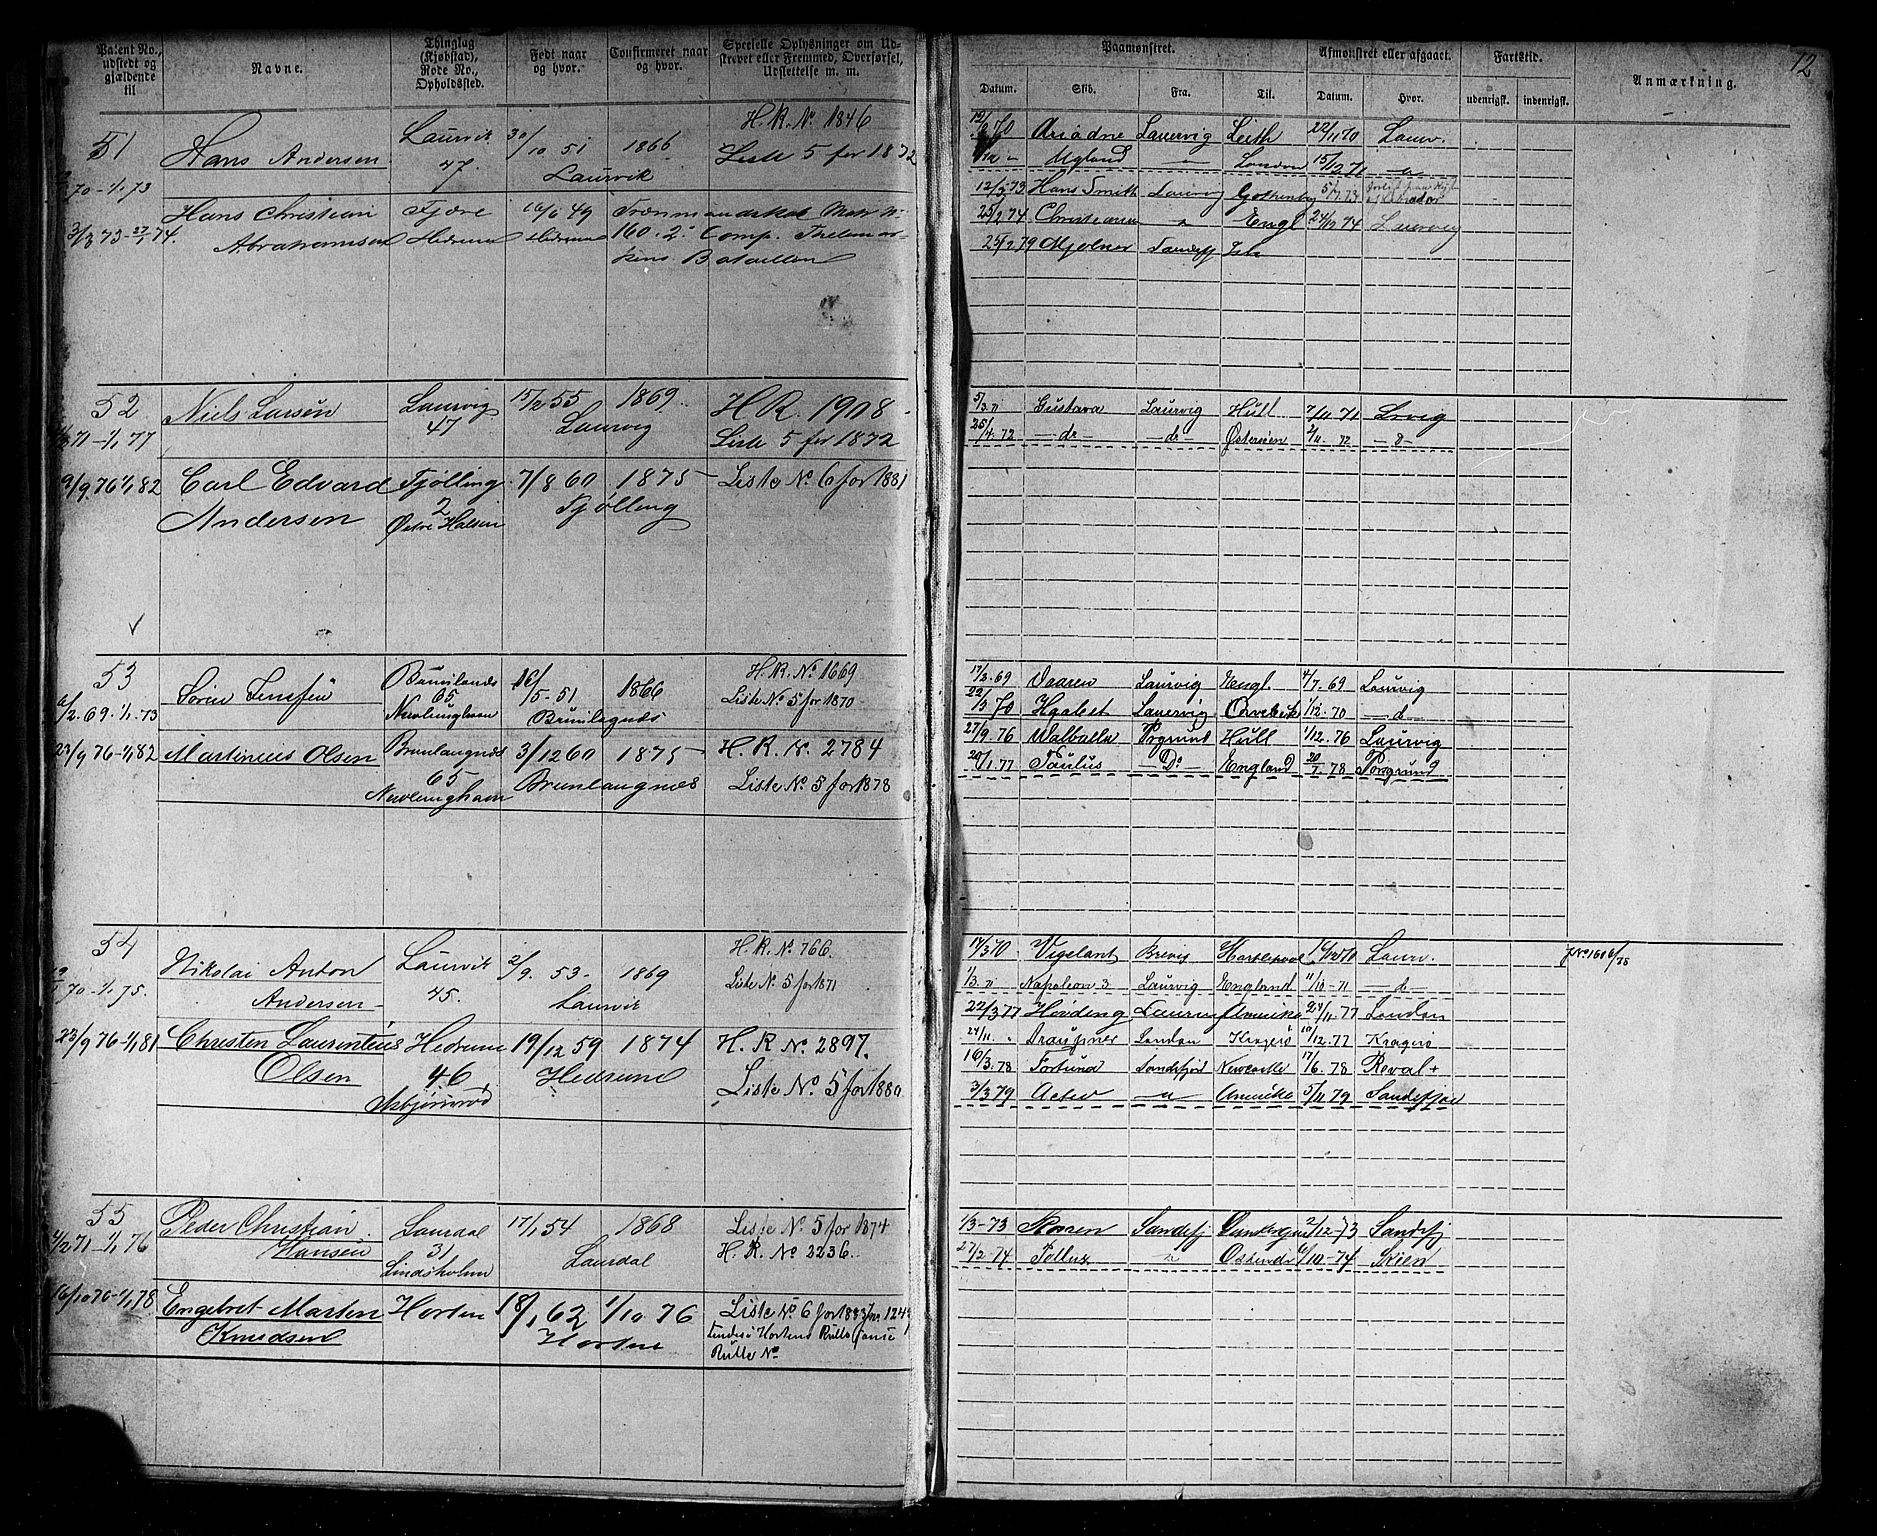 Patent No., udstedt og gjældende til
Navne.
Thinglag (Kjøbstad), Rode No., Opholdssted.
Født naar og hvor.
Confirmeret naar og hvor.
Specielle Oplysninger om Udskrevet eller Fremmed, Overførsel, Udslettelse m. m.
51
Hans Andersen
Laurvik
47
30/10 51
Laurvik
1866
H. R. No 1846
Liste 5 for 1872
70-1/1 73
3/3 73-27/1 74.
Hans Christian
Abrahamsen
Fjære
Hedrum
49
Hedrum
160. 2. Comp. Thelemar-
kens Bataillon
52
71-1/1 77
Niels Larsen
Laurvig
47
15/2 55
Laurvig
1869
H. R. 1908
Liste 5 for 1872
9/9 76 1/1 82
Carl Edvard
Andersen
Tjølling
2
Østre Halsen
7/8 60
Tjølling
1875
Liste No 6 for 1881
53
2. 69. 1/1. 73
Brunlanæs
65
Nevlunghavn
16/5-51
Brunlagnæs
1866
H. R. No 1669
Liste No 5 for 1870
23/9 76-1/1 82
Martinius Olsen
Brunlangnæs
65
Nevlunghavn
3/12 60
Brunlangnæs
1875
H. R. No. 2784
Liste No 5 for 1878
54
70-1/1. 75.
Nikolai Anton
Andersen
Laurvik
45.
2/9. 53
Laurvik
1869
H. R. No. 766.
Liste No 5 for 1871
23/9 76-1/1 81
Christen Laurentius
Olsen
Hedrum
46
Asbjørnrød
19/12 59
Hedrum
1874
H. R. No. 2897.
Liste No 5 for 1880
55
4/2 71-1/1 76
Peder Christian
Hansen
Laurdal
31
Lindsholm
17/1 54
Laurdal
1868
Liste No. 5 for 1874
H. R. No 3236.
16/10 76-1/1 78
Engebret Marten
Knudsen
Horten
18/1 62
Horten
1/10 76
Liste No 6 for 1883
Rulle No
12
Paamønstret.
Afmønstret eller afgaaet.
Fartstid.
Anmærkning.
Datum.
Skib.
Fra.
Til.
Datum.
Hvor.
udenrigst.
indenrigst.
70 Ariadne Laurvig Leith 22/11 70 Laurv.
Ugland " London 15/12 71 "
12/5 73 Hans Smith Laurvig Gothenbg 5/7 73
25/2 74 " Engl 24/12 74 Laurvig
25/2 79 Mjølner Sandefj
5/3 71 Gustava Laurvig Hull 7/11 71 Lrvig
25/4. 72 do do Østersøen 2/11 72
17/2. 69 Laurvig Engl. 4/7. 69 Laurvig
70 Haabet Laurvig 1/12. 70 d
27/9 76 Walhalla Prgrund Hull 1/12. 76 Laurvig
20/1 77 Paulus Do England 20/7. 78 Porsgrund
17/3 70 Vigelant Brevig Hartlepool Laurv.
1/3. 71 Napoleon 3 Laurvig England 11/10-71 d
22/3 77 Høvding Amerika 24/11-77 London
24/11. Draupner London Kragerø 10/12-77 Kragerø
16/3. 78 Fortuna Sandefjord Newcastle 17/6. 78 Reval +
3/3 79 " Amerika 5/11 79
1/3-73 Sandefj 2/12-73 Sandefj
27/2-74 Pollux " Ostende 6/10-74 Skien